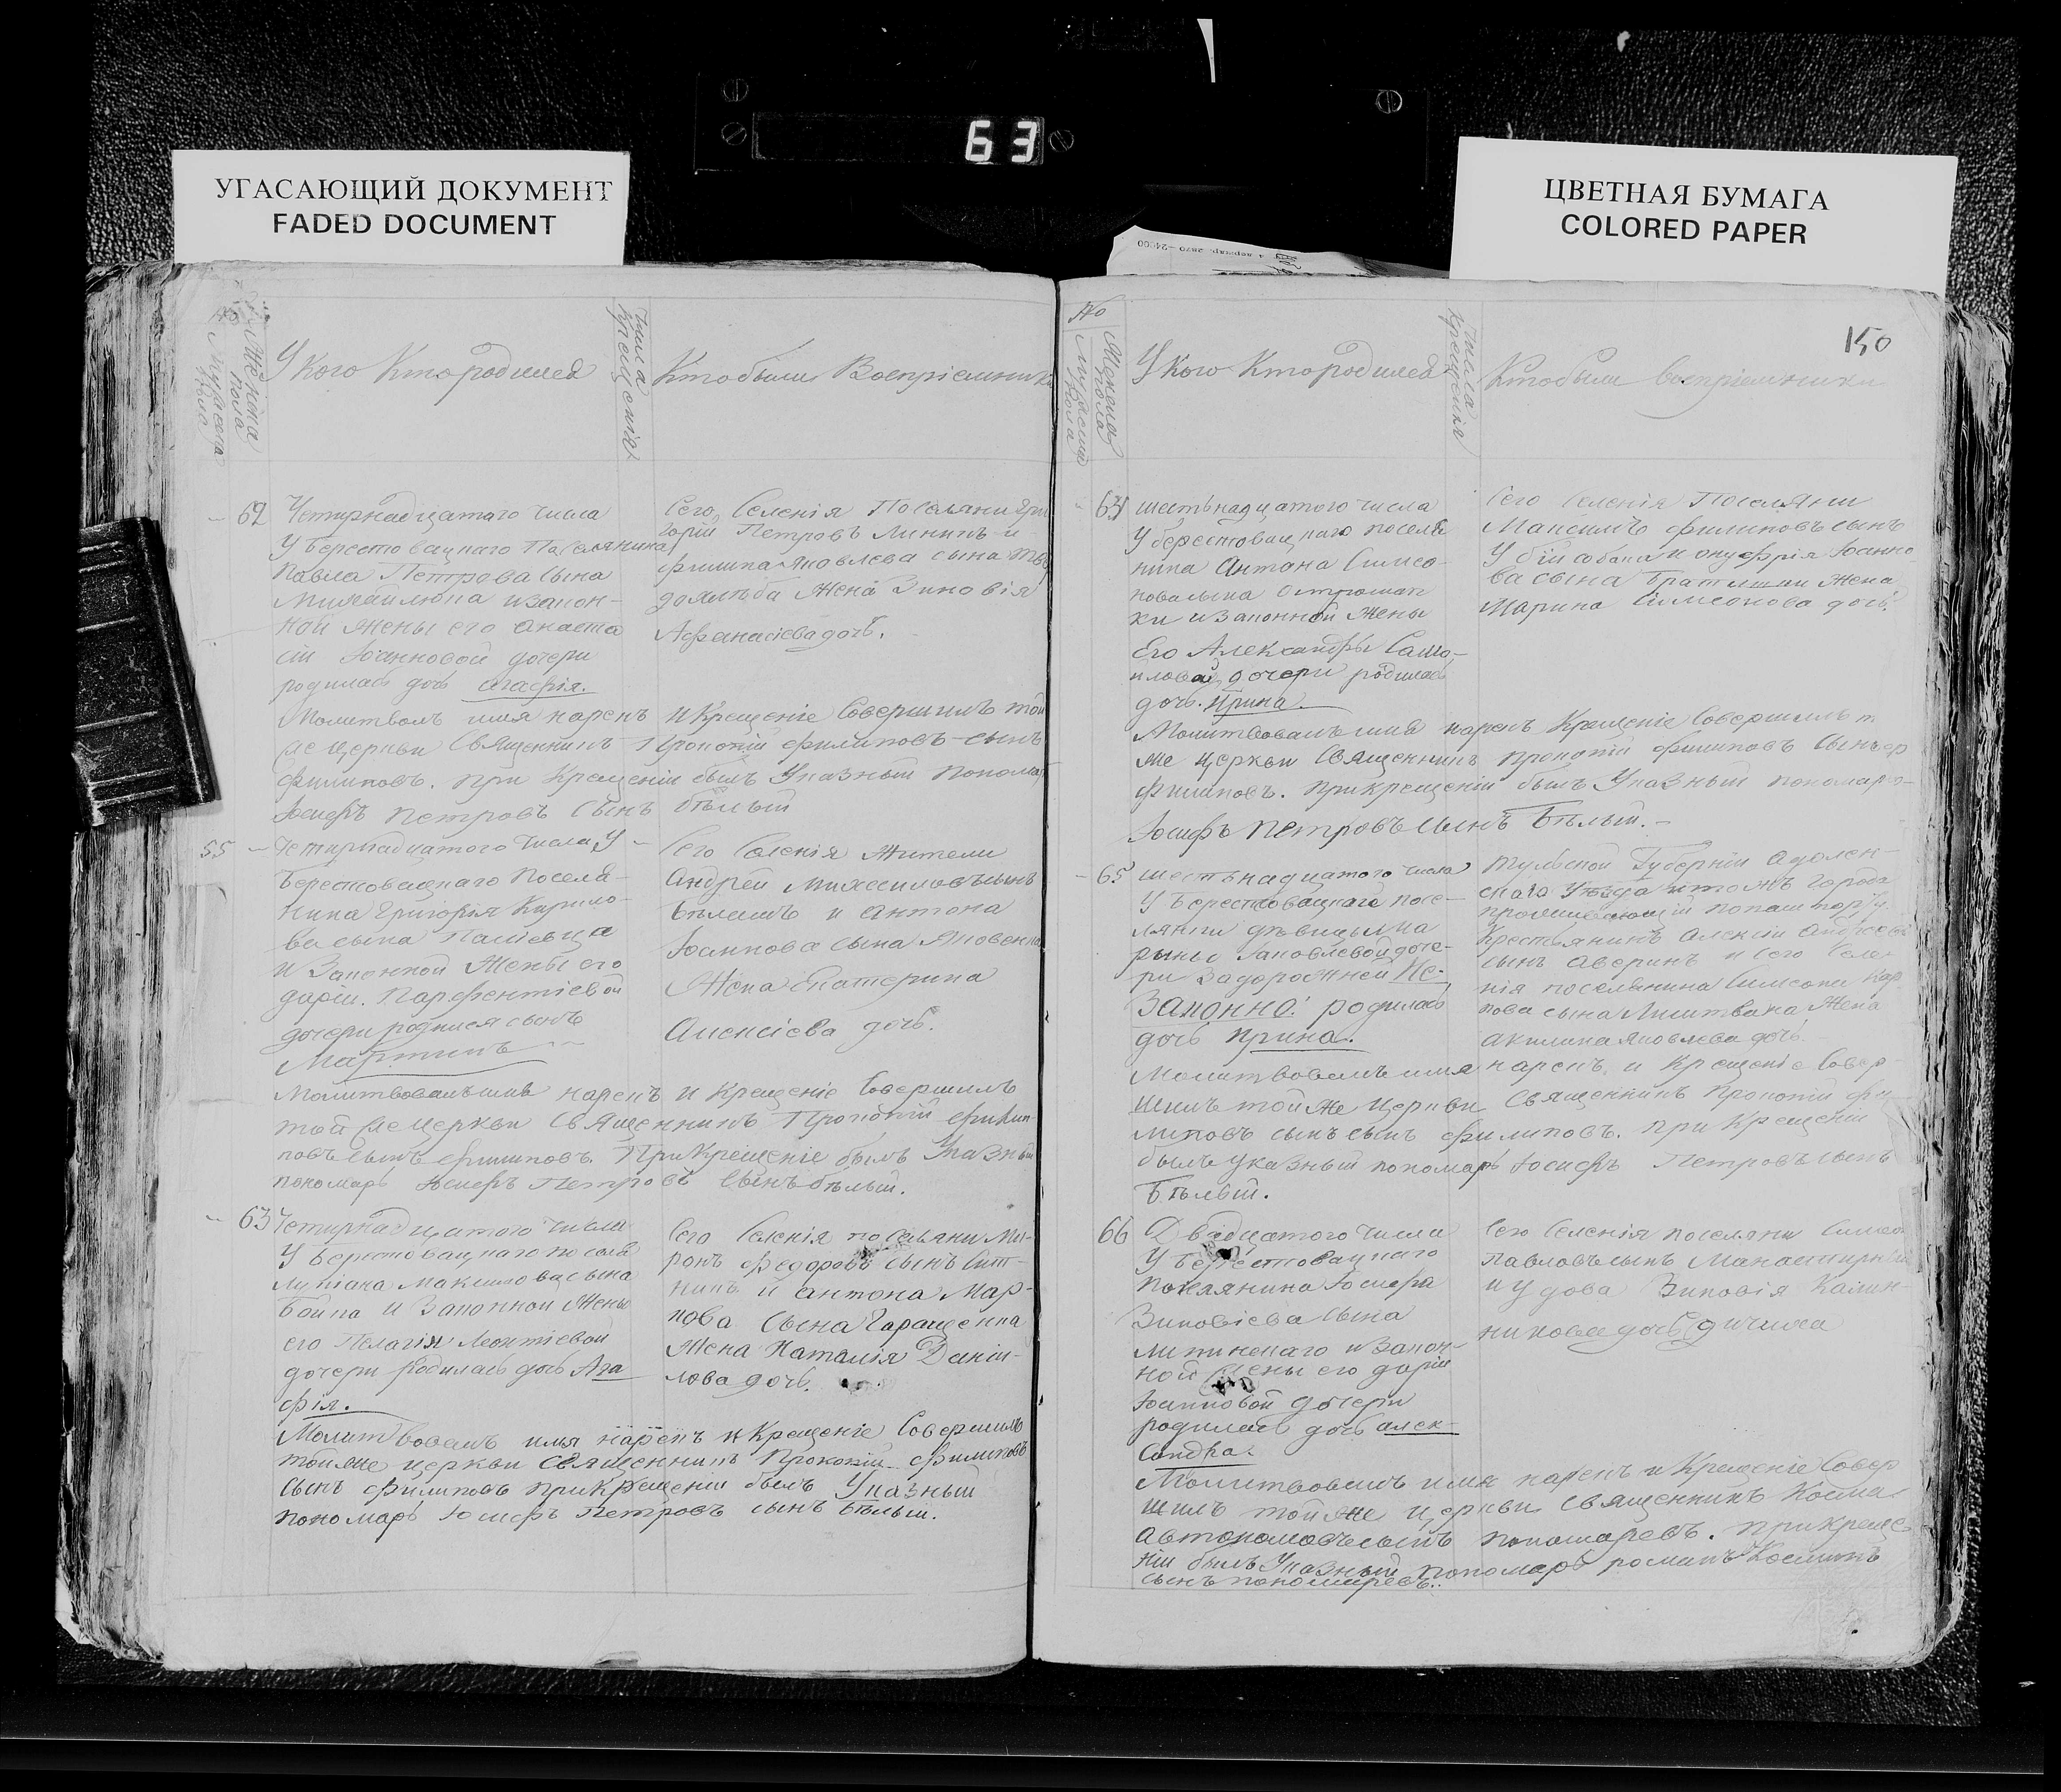 63
УГАСАЮЩИЙ ДОКУМЕНТ
FADED DOCUMENT
ЦВЕТНАЯ БУМАГА
COLORED PAPER
150
№
Женска пола
Мужеска пола
У Кого Кто родился
Числа крещенія
Кто были Воспріемники
62
Четирнадцатаго числа
У Берестовацкаго Поселянина
Павла Петрова сына
Михайлюка и закон-
ной жены его Анаста
сіи Іоанновой дочери
родилась дочь Агафія.
Сего Селенія Поселяни Гри
горій Петровъ Линикъ и
Филипа Яковлева сына
Жена Зиновія
Афанасіева дочь.
Молитвовалъ имя нарекъ и Крещеніе Совершилъ той
же церкви Священникъ Прокопій Филиповъ сынъ
Филиповъ. При Крещеніи былъ Указный Пономарь
Іосифъ Петровъ сынъ Бѣлый
55
Четирнадцатого числа У
Берестовацкаго Поселя-
нина Григорія Кирило-
ва сына
и Законной Жены его
Даріи Парфентіевой
дочери родился сынъ
Мартинъ
Сего Селенія Жители
Андрей Михайловъ сынъ
и Антона
Іоаннова сына Яковенка
Жена Екатерина
Алексіева дочь.
Молитвовалъ имя нарекъ и Крещеніе Совершилъ
той же церкви Священникъ Прокопій Филип
повъ сынъ Филиповъ. При Крещеніе былъ Указный
пономарь Іосифъ Петровъ сынъ Бѣлый.
63
Четирнадцатого числа
У Берестовацкаго поселя
Лукіана Максимова сына
Бойка и Законной Жены
его Пелагіи Леонтіевой
дочери родилась дочь Ага
фія.
Сего Селенія поселяни Ми-
ронъ Федоровъ сынъ Сит-
никъ и Антона Кар-
пова Сына Гаращенка
Жена Наталія Даніи-
лова дочь.
Молитвовалъ имя нарекъ и Крещеніе Совершилъ
той же церкви Священникъ Прокопій Филиповъ
сынъ Филиповъ при Крещеніи былъ Указный
пономарь Іосифъ Петровъ сынъ Бѣлый.
№
Женска пола
Мужеска пола
У Кого Кто родился
Числа крещенія
Кто были воспріемники
шестьнадцатого числа
У берестовацкаго поселя
нина Антона Симео-
нова сына
ки и законной Жены
Его Александры
дочери родилась
дочь. Ирина.
Сего Селенія Поселяни
Максимъ Филиповъ сынъ
Убій собака и Онуфрія Іоанно
ва сына Жена
Марина Симеонова дочь.
Молитвовалъ имя нарекъ Крещеніе Совершилъ т
же церкви Священникъ Прокопій Филиповъ Сынъ
Филиповъ. При крещеніи былъ Указный пономарь
Іосифъ Петровъ Сынъ Бѣлый.
65
шестьнадцатого числа
У Берестовацкаго посе-
лянки дѣвицы Ма
рыны Яковлевой доче-
ри Задорожней Не-
Законно: родилась
дочь Ирина.
Тульской Губерніи
Уѣзда и того жъ города
проживающій по пашпорту
Крестьянинъ Алексій Андреевъ
сынъ Аверинъ и Сего Селе
нія поселянина Симеона Кар
пова сына Жена
Акилина Яковлева дочь.
Молитвовалъ имя нарекъ и Крещеніе Совер-
шилъ той же Церкви Священникъ Прокопій Фи
липовъ сынъ сынъ Филиповъ. При Крещеніи
былъ указный пономарь Іосифъ Петровъ сынъ
Бѣлый.
66
Двадцатого числа
У Берестовацкаго
Поселянина Іосифа
Зиновіева сына
и Закон-
ной Жены его Даріи
Іоанновой дочери
родилась дочь Алек-
сандра.
Сего Селенія поселяни Симеонъ
Павловъ сынъ
и удова Зиновія Калин-
никова дочь
Молитвовалъ имя нарекъ и Крещеніе Совер
шилъ той же церкви Священникъ Косма
Автономовъ сынъ Пономаревъ. При креще
ніи былъ Указный пономарь Романъ Косминъ
сынъ Пономаревъ.